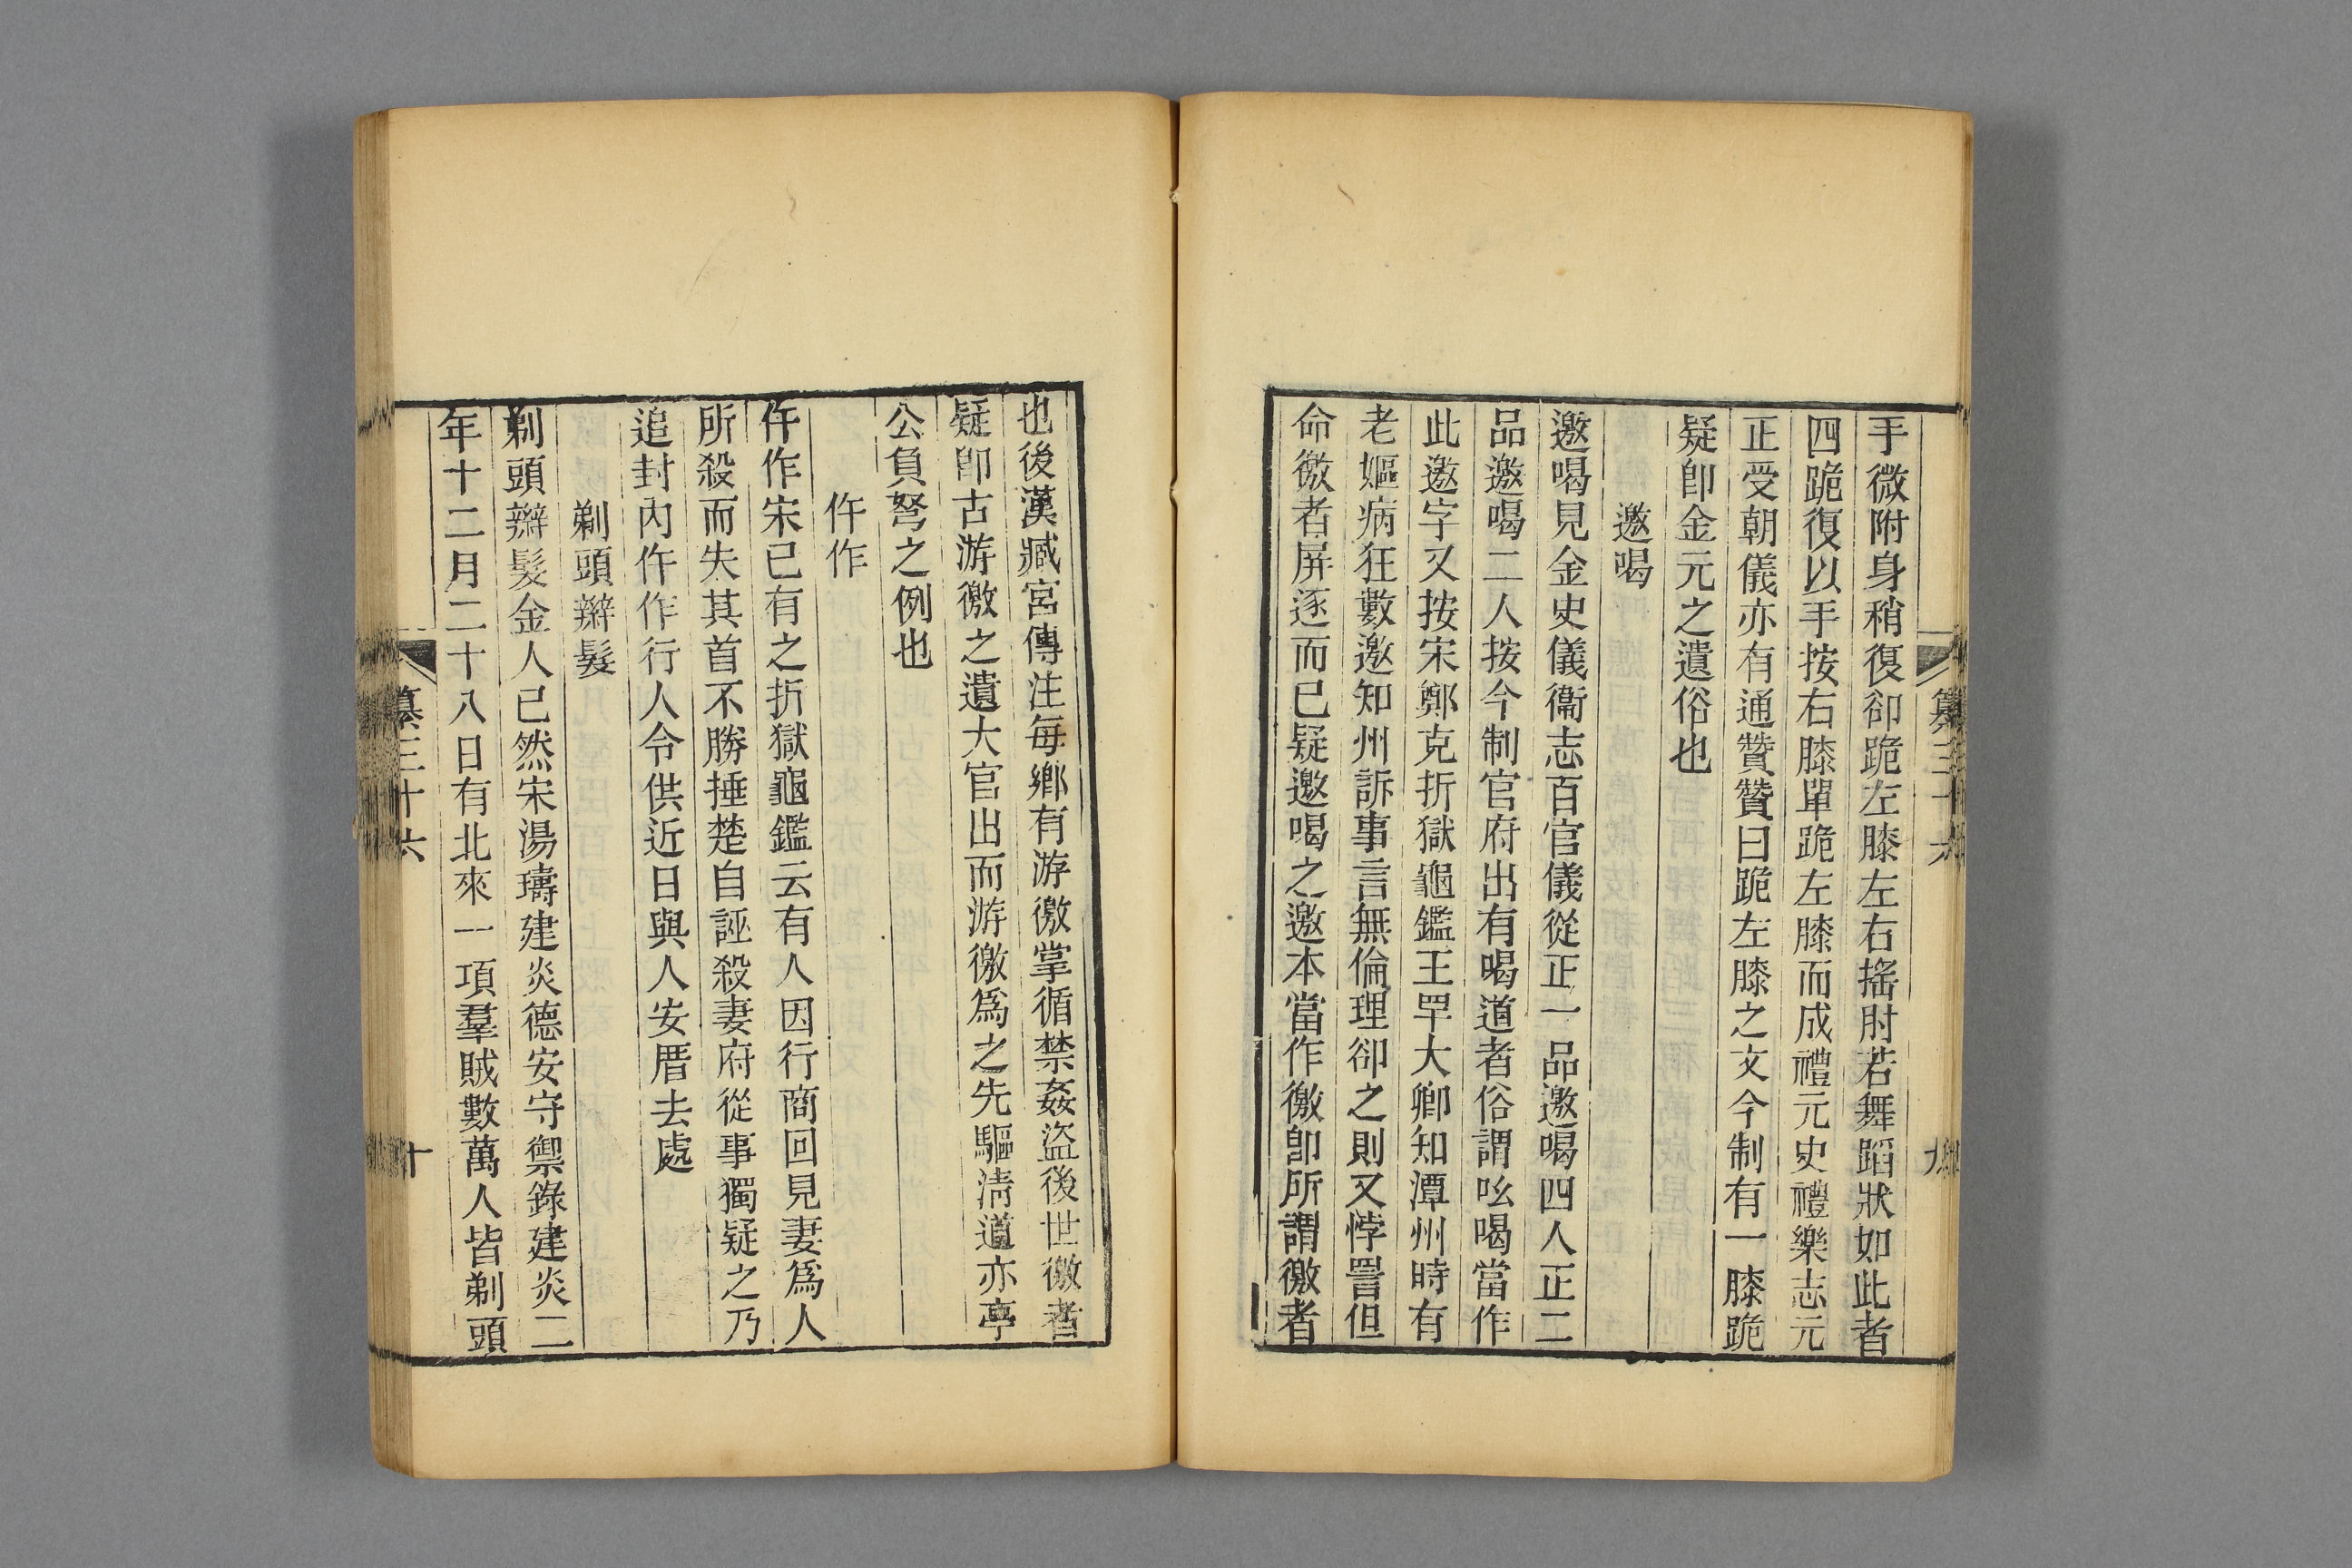 手微附身稍復卻跪左膝左右搖肘若舞蹈狀如此者
四跪復以手按右膝單跪左膝而成禮元史禮樂志元
正受朝儀亦有通贊贊曰跪左膝之文今制有一膝跪
疑卽金元之遺俗也
邀喝
邀喝見金史儀衞志百官儀從正一品邀喝四人正二
品邀喝二人按今制官府出有喝道者俗謂吆喝當作
此邀字又按宋鄭克折獄龜鑑王罕大卿知潭州時有
老嫗病狂數邀知州訴事言無倫理卻之則又悖詈但
命徼者屏逐而已疑邀喝之邀本當作徼卽所謂徼者
纂三十六
九
也後漢臧宮傳注每鄉有游徼掌循禁姦盜後世徼者
疑卽古游徼之遺大官出而游徼爲之先驅淸道亦亭
公負弩之例也
仵作
仵作宋已有之折獄龜鑑云有人因行商回見妻爲人
所殺而失其首不勝捶楚自誣殺妻府從事獨疑之乃
追封內仵作行人令供近日與人安厝去處
剃頭辮髮
剃頭辮髮金人已然宋湯璹建炎德安守禦錄建炎二
年十二月二十八日有北來一項羣賊數萬人皆剃頭
纂三十六
十